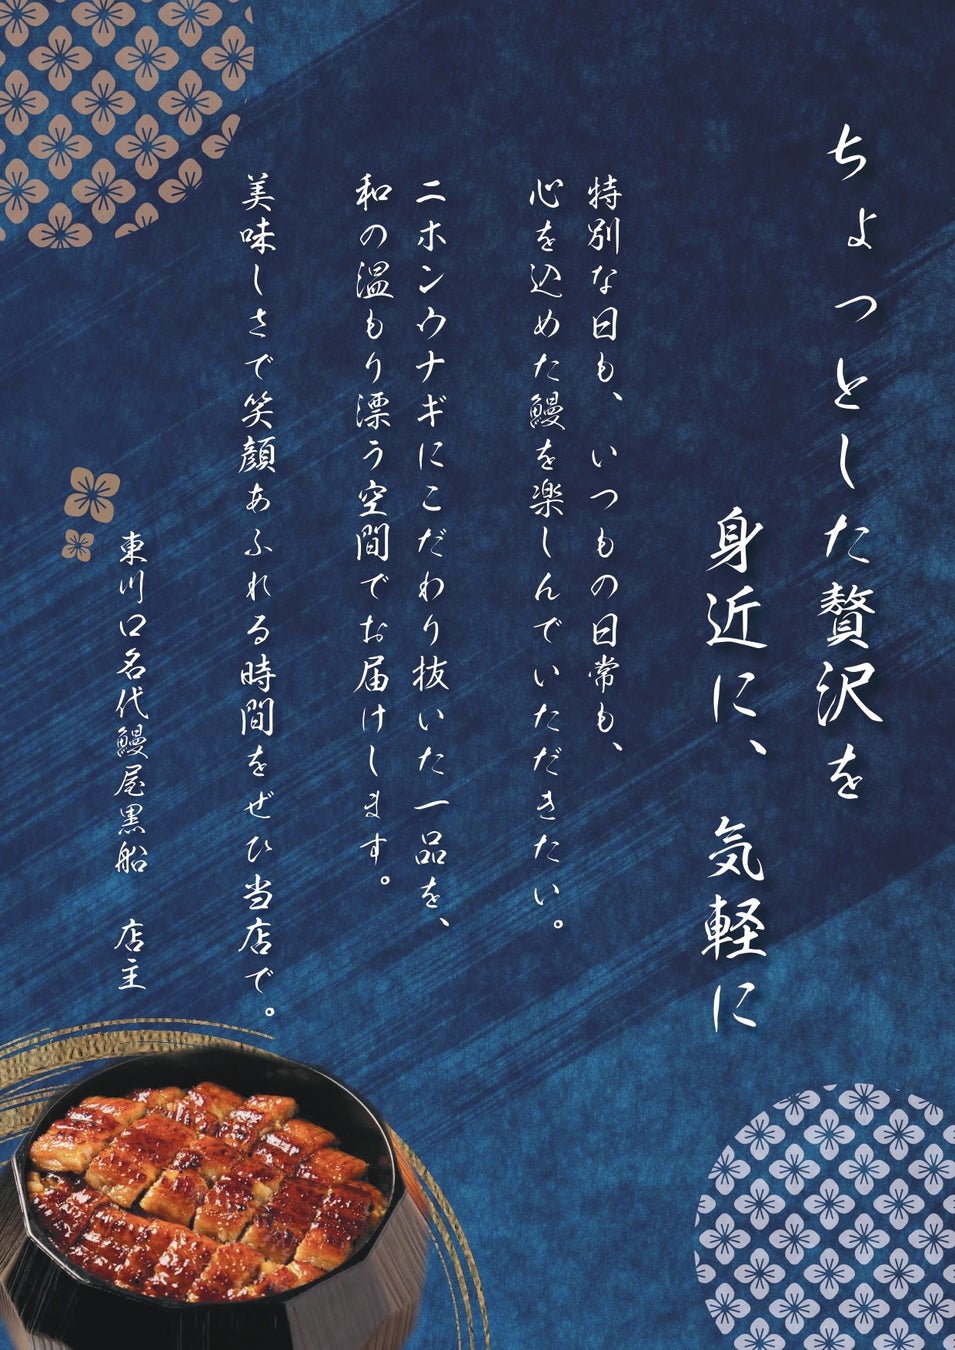 ちょっとした贅沢を
身近に、気軽に
特別な日も、いつもの日常も、
心を込めた鰻を楽しんでいただきたい。
ニホンウナギにこだわり抜いた一品を、
和の温もり漂う空間でお届けします。
美味しさで笑顔あふれる時間をぜひ当店で。
東川口名代鰻尾黒船　店主